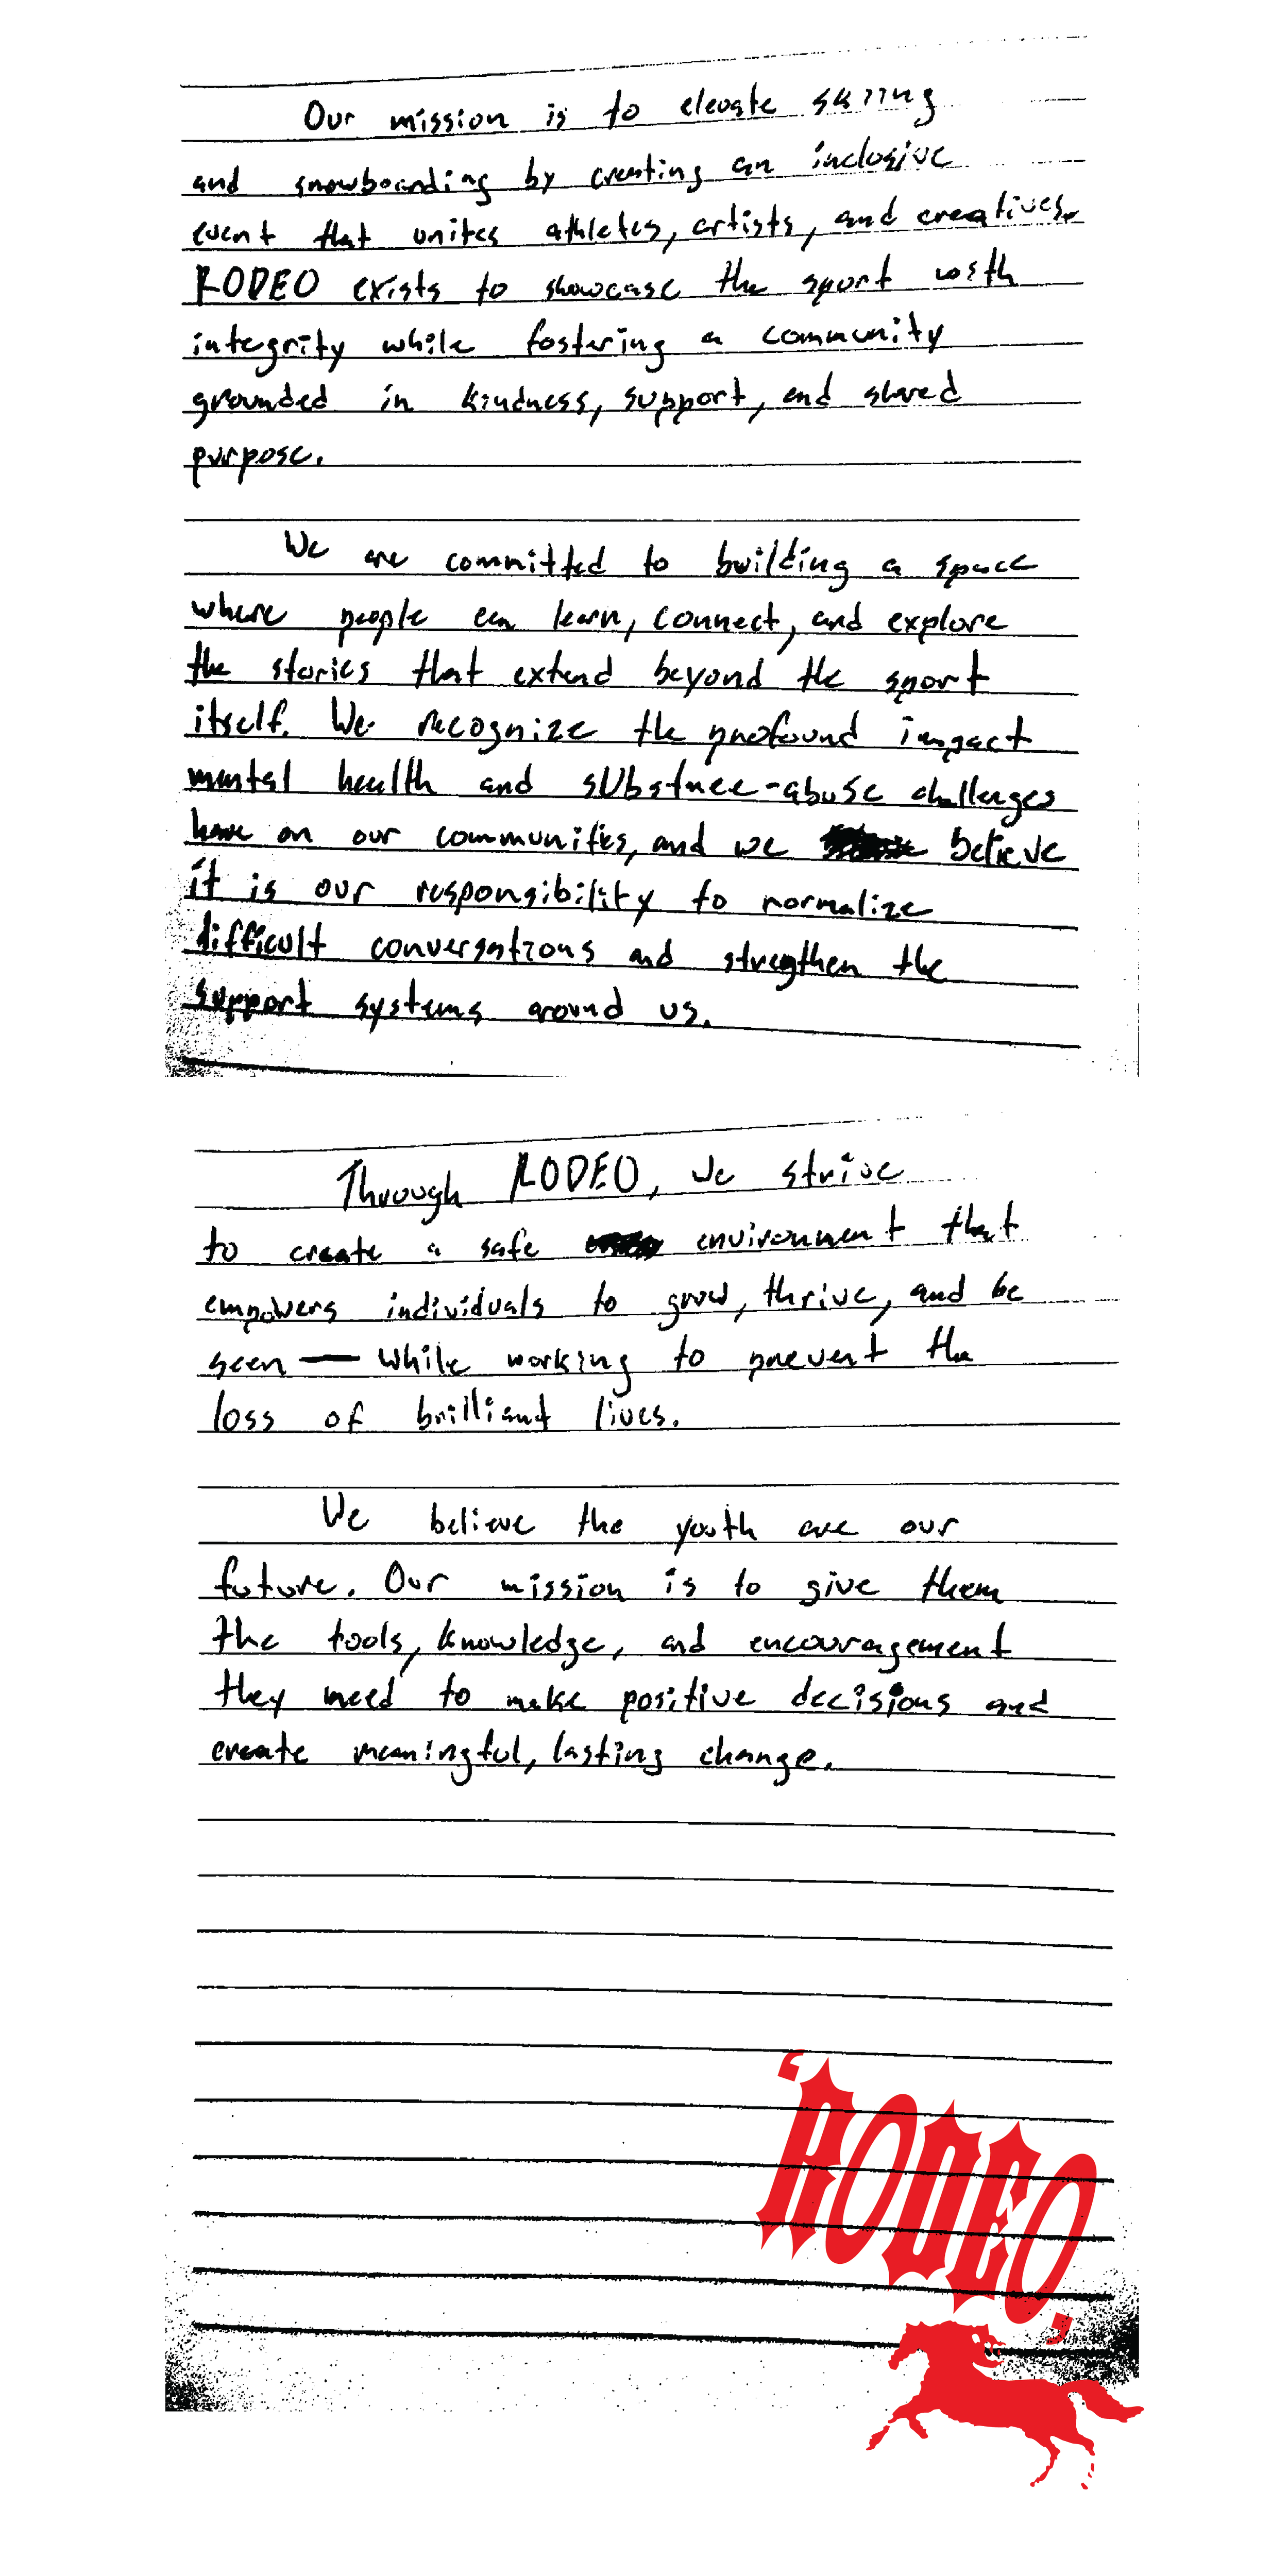 Our mission is to elevate skiing
and snowboarding by creating an inclusive
event that unites athletes, artists, and creatives.
RODEO exists to showcase the sport with
integrity while fostering a community
grounded in kindness, support, and shared
purpose.
We are committed to building a space
where people can learn, connect, and explore
the stories that extend beyond the sport
itself. We recognize the profound impact
mental health and substnce-abuse challenges
have on our communities, and we believe
it is our responsibility to normalize
difficult conversations and stregthen the
support systems around us.
Through RODEO, we strive
to create a safe environment that
empowers individuals to grow, thrive, and be
seen — while working to prevent the
loss of brilliant lives.
We believe the youth are our
future. Our mission is to give them
the tools, knowledge, and encouragement
they need to make positive decisions and
create meaningful, lasting change.
'RODEO,